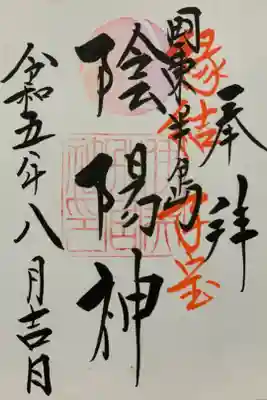 奉拝
縁結子宝
国東半島
陰陽神
令和五年八月吉日